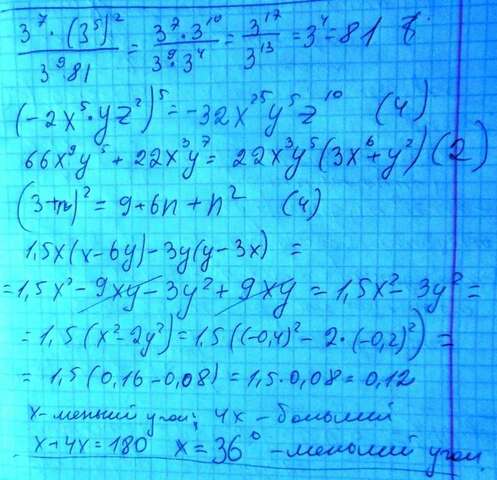 3⁷·(3⁵)² / 3⁹81 = 3⁷·3¹⁰ / 3⁹·3⁴ = 3¹⁷ / 3¹³ = 3⁴ = 81
(-2x⁵·yz²)⁵ = -32x²⁵y⁵z¹⁰ (4)
66x⁹y⁵ + 22x³y⁷ = 22x³y⁵(3x⁶+y²) (2)
(3+n)² = 9+6n+n² (4)
1,5x(x-6y)-3y(y-3x) =
=1,5x²-9xy-3y²+9xy = 1,5x²-3y² =
=1,5(x²-2y²)=1,5((-0,4)²-2·(-0,2)²) =
=1,5(0,16-0,08)=1,5·0,08=0,12
x-меньший угол; 4x-больший
x+4x=180° x=36°-меньший угол